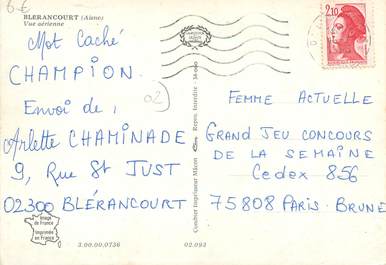 6€
BLERANCOURT (Aisne)
Vue aérienne
Mot Caché
CHAMPION.
Envoi de,
Arlette CHAMINADE
9, Rue St JUST
02300 BLÉRANCOURT
02
Image de France
Imprimée en France
3.00.00.0736
02.093
Combier Imprimeur Mâcon
Repro. Interdite
2,10
FEMME ACTUELLE
GRAND JEU CONCOURS
DE LA SEMAINE
Cedex 856
75808 PARIS. BRUNE